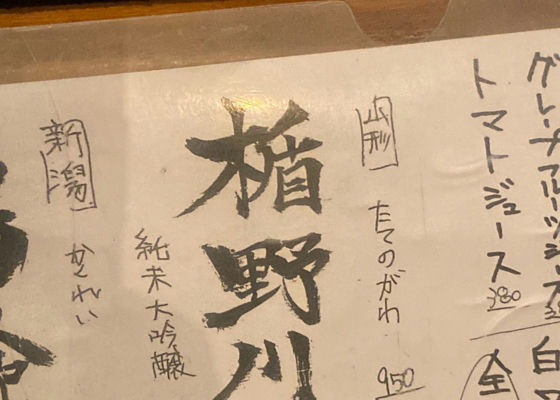 グレープフルーツジュース
トマトジュース
380
白
全
山形
たてのがわ
950
楯野川
純米大吟醸
新潟
かれい